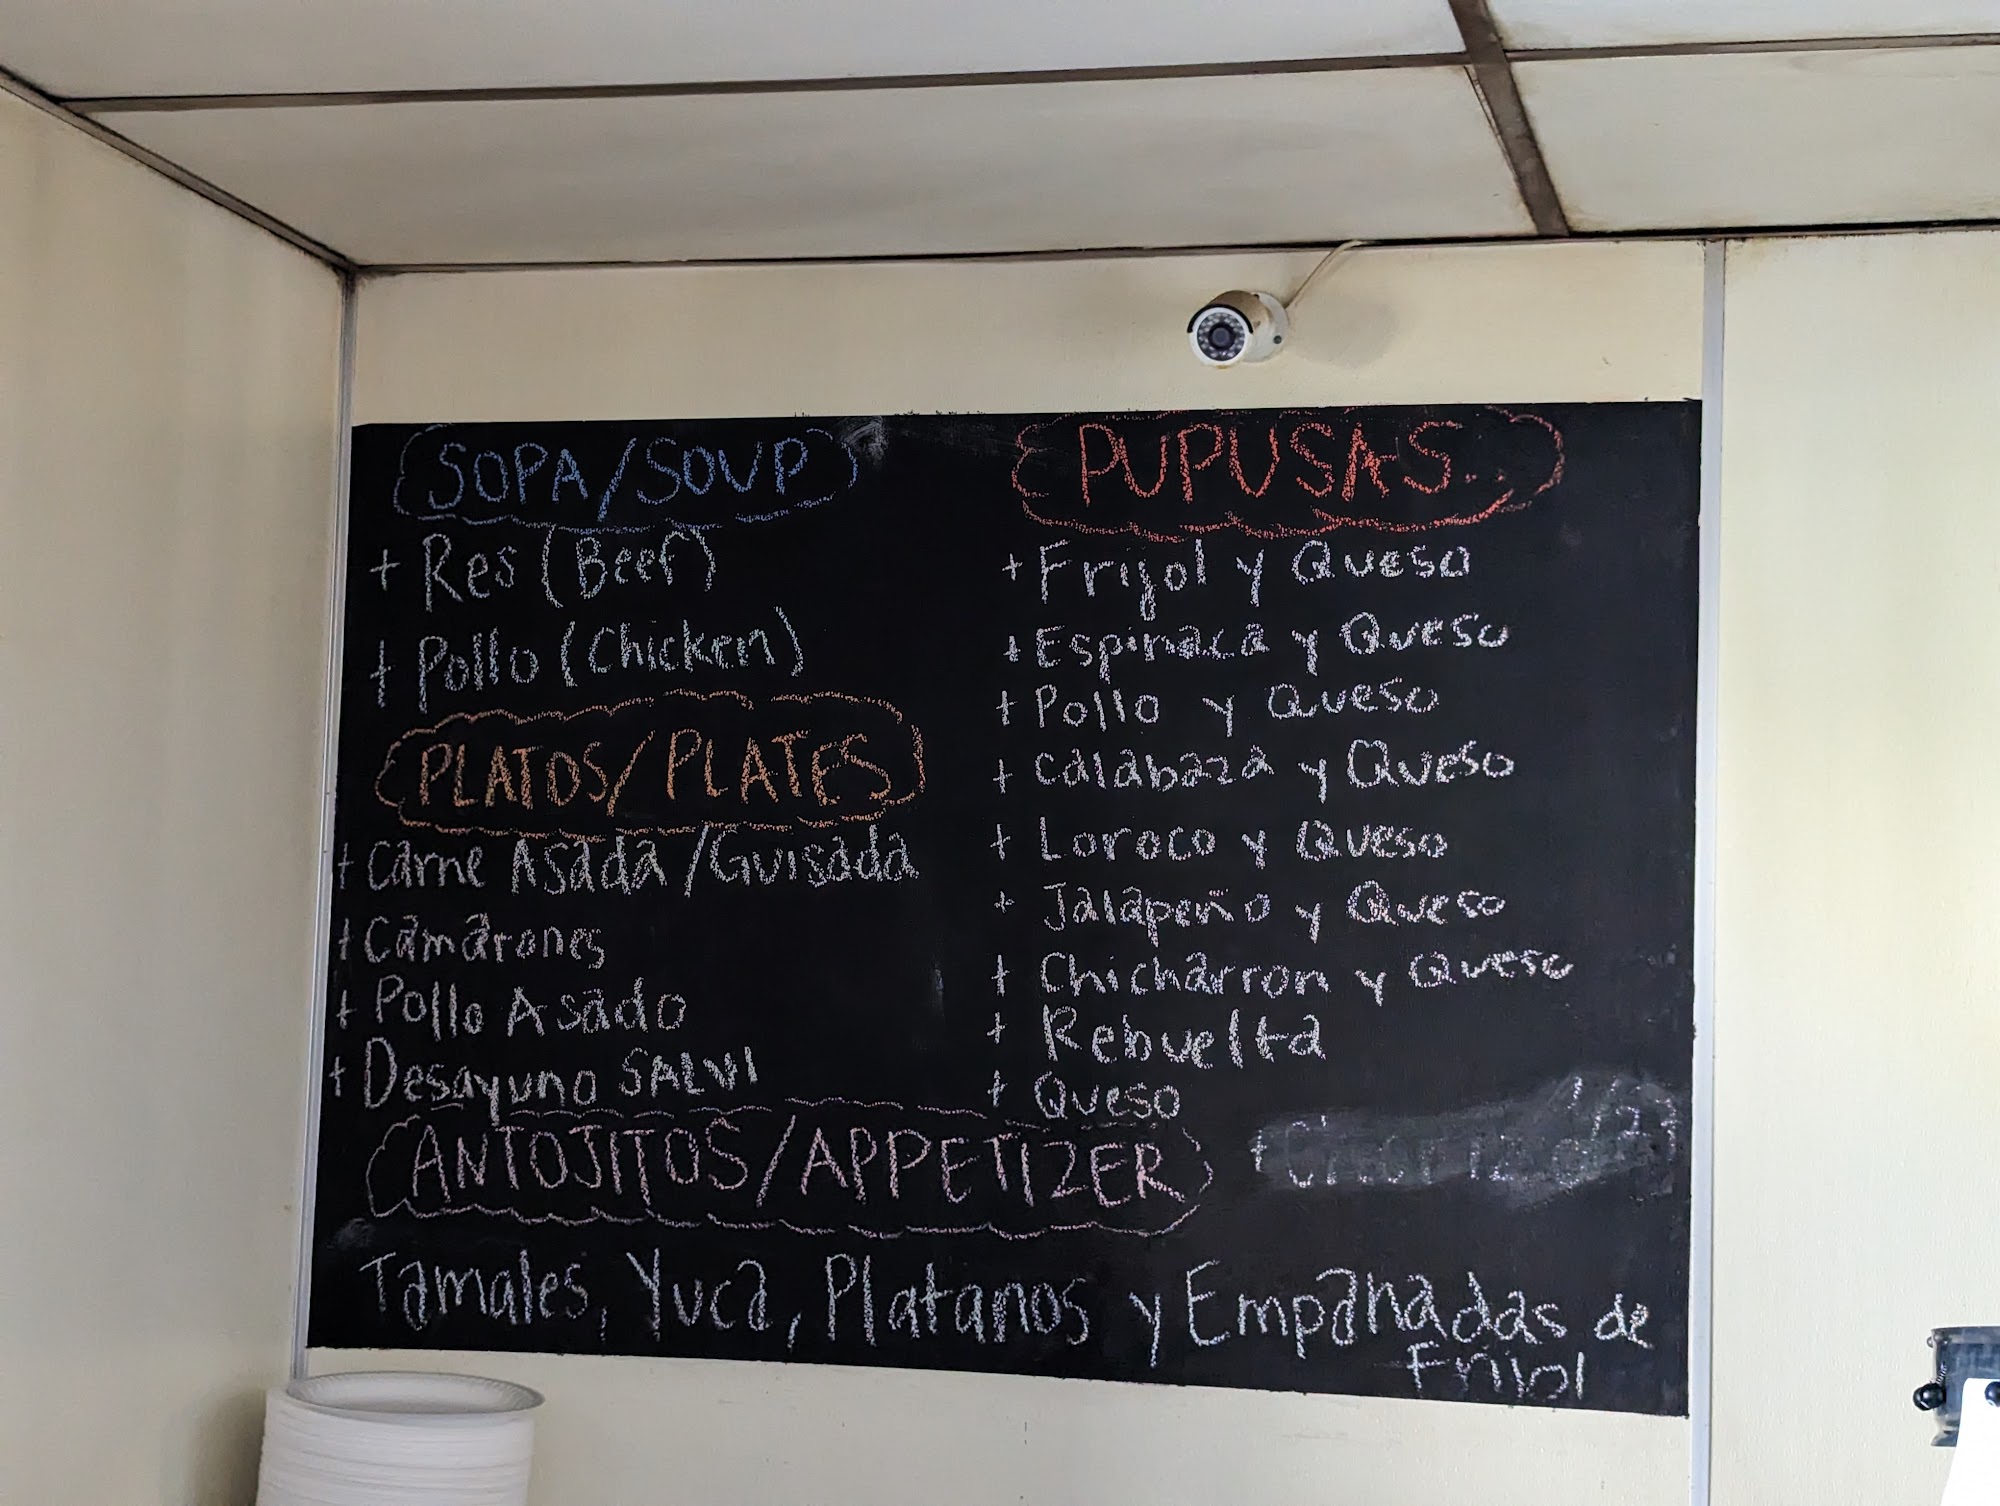 SOPA/SOUP
+ Res (Beef)
+ Pollo (Chicken)
PLATOS/PLATES
+ Carne Asada/Guisada
+ Camarones
+ Pollo Asado
+ Desayuno SALVI
PUPUSAS..
+ Frijol y Queso
+ Espinaca y Queso
+ Pollo y Queso
+ Calabaza y Queso
+ Loroco y Queso
+ Jalapeño y Queso
+ Chicharron y Queso
+ Rebuelta
+ Queso
ANTOJITOS/APPETIZER
Tamales, Yuca, Platanos y Empanadas de
Frijol